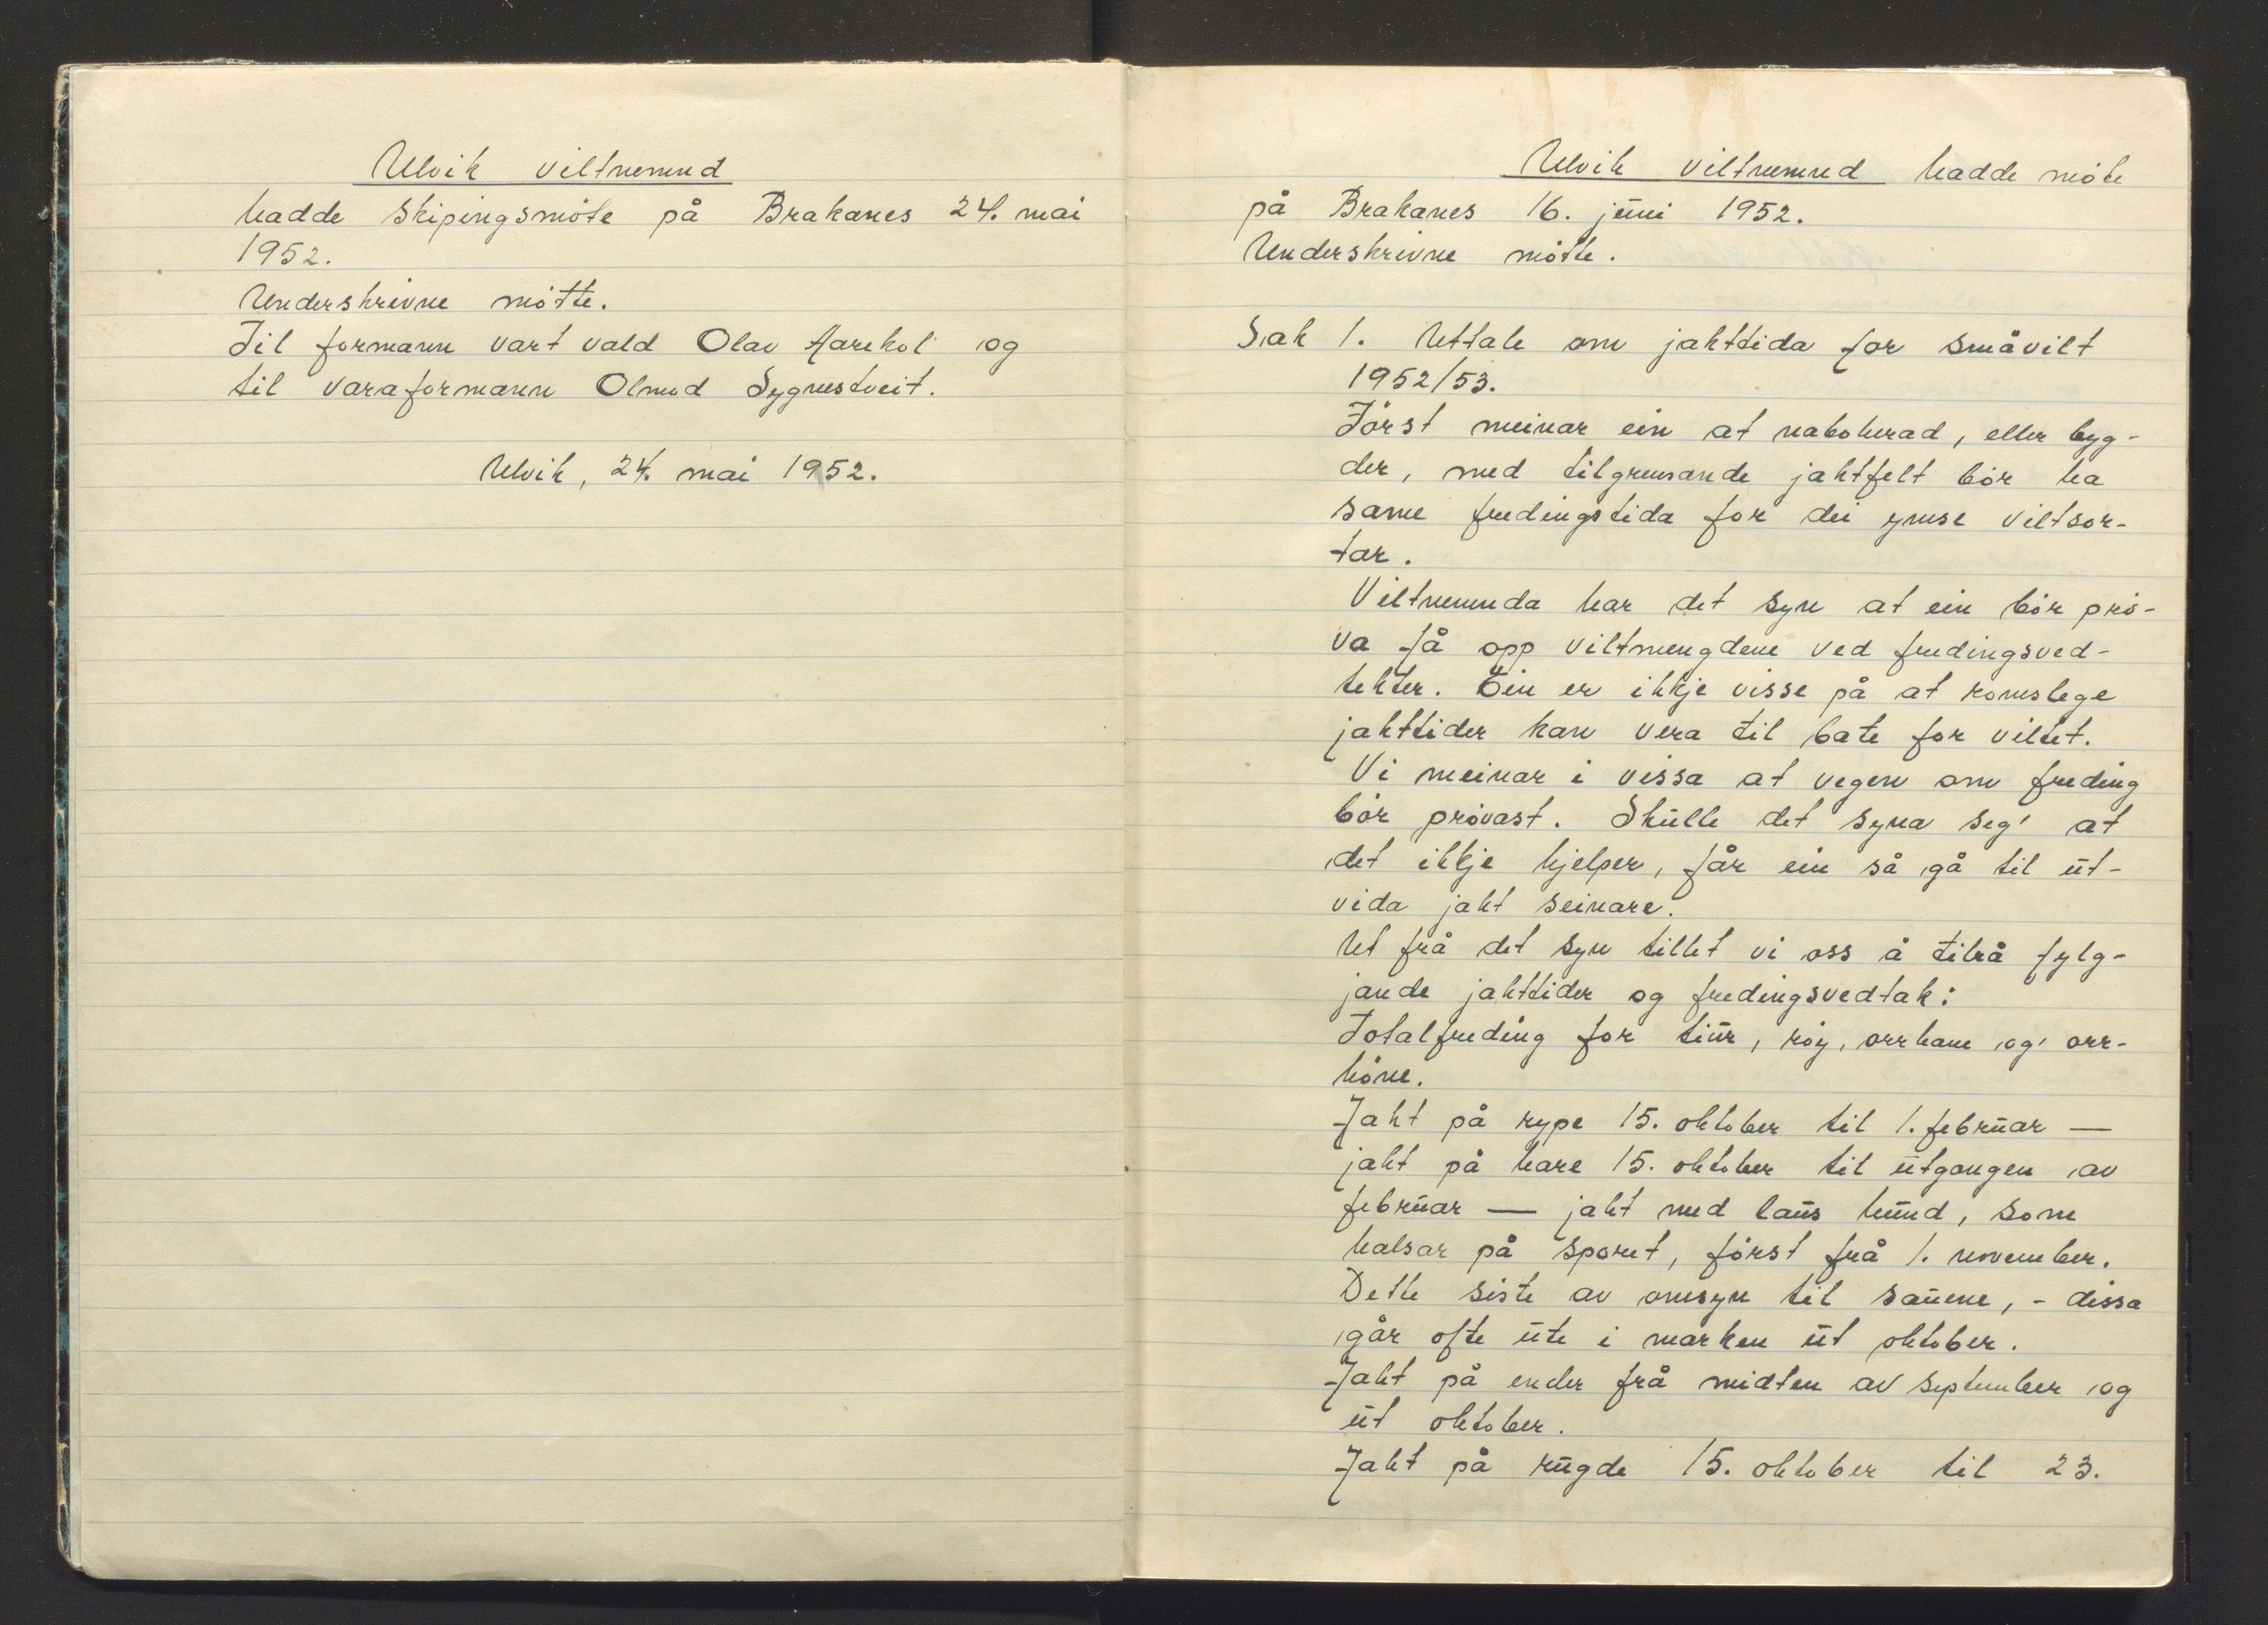 Ulvik viltnemnd
hadde skipingsmöte på Brakanes 24. mai
1952.
Underskrivne mötte.
Til formann vart vald Olav Aarekol og
til varaformann Olmod Sygnestveit.
Ulvik, 24. mai 1952.
Ulvik viltnemnd hadde möte
på Brakanes 16. juni 1952.
Underskrivne mötte.
Sak 1. Uttale om jakttida for småvilt
1952/53.
Först meinar ein at naboherad, eller byg-
der, med tilgrensande jaktfelt bör ha
same fredingstida for dei ymse viltsor-
tar.
Viltnemnda har det syn at ein bör prö-
va få opp viltmengdene ved fredingsved-
tekter. Ein er ikkje visse på at romslege
jakttider kan vera til bate for viltet.
Vi meinar i vissa at vegen om freding
bör prövast. Skulle det syna seg at
det ikkje hjelper, får ein så gå til ut-
vida jakt seinare.
Ut frå det syn tillet vi oss å tilrå fylg-
jande jakttider og fredingsvedtak:
Totalfreding for tiur, röy, orrhane og orr-
höne.
Jakt på rype 15. oktober til 1. februar —
jakt på hare 15. oktober til utgangen av
februar — jakt med laus hund, som
halsar på sporet, först frå 1. november.
Dette siste av omsyn til sauene, - dissa
går ofte ute i marken ut oktober.
Jakt på ender frå midten av september og
ut oktober.
Jakt på rugde 15. oktober til 23.